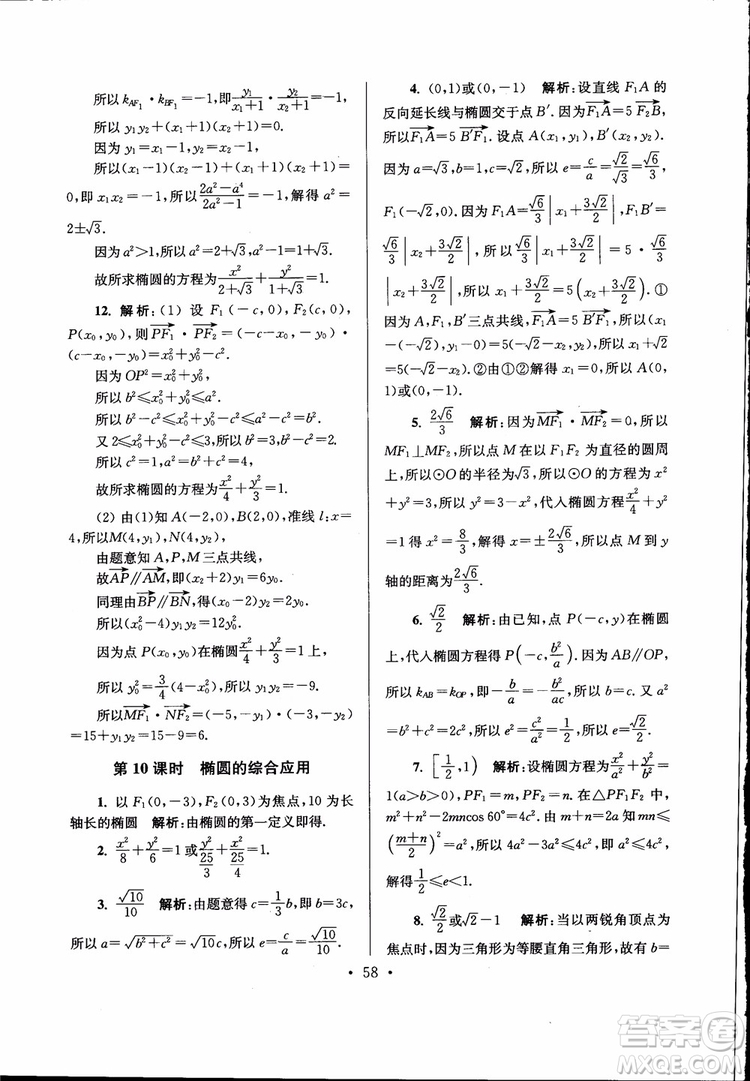 所以 k_{AF₁}·k_{BF₁}=-1,即 y₁/(x₁+1)·y₂/(x₂+1)=-1.
所以 y₁y₂+(x₁+1)(x₂+1)=0.
因为 y₁=x₁-1,y₂=x₂-1,
所以(x₁-1)(x₂-1)+(x₁+1)(x₂+1)=
0,即 x₁x₂=-1,所以 (2a²-a⁴)/(2a²-1)=-1,解得 a²=
2±√3.
因为 a²>1,所以 a²=2+√3,b²=1+√3.
故所求椭圆的方程为 x²/(2+√3)+y²/(1+√3)=1.
12. 解析:(1) 设 F₁(-c,0),F₂(c,0),
P(x₀,y₀),则 PF₁·PF₂=(-c-x₀)(c-
x₀)+(-y₀)²=x₀²+y₀²-c².
因为 OP²=x₀²+y₀²,
所以 b²≤x₀²+y₀²≤a².
所以 b²-c²≤x₀²+y₀²-c²≤a²-c²=b²,
又 2≤x₀²+y₀²-c²≤3,所以 b²=3,b²-c²=
2.所以 c²=1,a²=4.
故所求椭圆的方程为 x²/4+y²/3=1.
(2) 由(1)知 A(-2,0),B(2,0),准线 l:x=
4,所以M(4,y₁),N(4,y₂).
由题意知 A,P,M三点共线,
故AP∥AM,即(x₀+2)y₁=6y₀.
同理由BP∥BN,得(x₀-2)y₂=2y₀.
所以(x₀²-4)y₁y₂=12y₀².
因为点 P(x₀,y₀)在椭圆 x²/4+y²/3=1上,
所以 y₀²=3/4(4-x₀²),所以 y₁y₂=-9.
所以MF₁·NF₂=(-5,-y₁)·(-3,-y₂)
=15+y₁y₂=15-9=6.
第 10 课时 椭圆的综合应用
1. 以 F₁(0,-3),F₂(0,3)为焦点,10 为长
轴长的椭圆 解析:由椭圆的第一定义即得.
2. x²/8+y²/6=1或 y²/(25/3)+x²/(25/4)=1
3. √10/10 解析:由题意得 c=1/3b,即 b=3c,
所以 a=√(b²+c²)=√10c,所以 e=c/a=√10/10.
4. (0,1)或(0,-1) 解析:设直线 F₁A 的
反向延长线与椭圆交于点 B′.因为F₁A=5 F₂B,
所以F₁A=5 B′F₁.设点 A(x₁,y₁),B′(x₂,y₂).
因为 a=√3,b=1,所以 c=√2,所以 e=c/a=√2/√3=√6/3,
F₁(-√2,0).所以 F₁A=√6/3|x₁+3√2/2|,F₁B′=
√6/3|x₂+3√2/2|,所以|x₁+3√2/2|=5·√6/3
|x₂+3√2/2|,所以 x₁+3√2/2=5(x₂+3√2/2).①
因为 A,F₁,B′三点共线,F₁A=5 B′F₁,所以 x₁
-(-√2),y₁=5(-√2-x₂,-y₂),所以 x₁+√2
=5(-√2-x₂).②由①②解得 x₁=0,所以点
A(0,1)或(0,-1).
5. 2√6/3 解析:因为MF₁·MF₂=0,所以
MF₁⊥MF₂,所以点 M在以F₁F₂为直径的圆周
上,所以⊙O 的半径为√3,所以⊙O 的方程为 x²
+y²=3,所以 y²=3-x²,代入椭圆方程 x²/4+y²
=1得 x²=8/3,所以 x=±2√6/3,所以点 M 到 y
轴的距离为2√6/3.
6. √2/2 解析:由已知,点 P(-c,y)在椭圆
上,代入椭圆方程得 P(-c,b²/a).因为AB∥OP,
所以 k_{AB}=k_{OP},即-b/a=-b²/ac,所以 b=c,所以 a²=
b²+c²=2c²,所以 e²=c²/a²=1/2,所以 e=√2/2.
7. [1/2,1) 解析:设椭圆方程为 x²/a²+y²/b²=
1(a>b>0),PF₁=m,PF₂=n.在△PF₁F₂中,
m²+n²-2mncos 60°=4c².由 m+n=2a知mn≤
((m+n)/2)²=a²,所以 4a²-3a²≤4c²,所以 c²/a²≥1/4,
解得1/2≤e<1.
8. √2/2或√2-1 解析:当以两锐角顶点为
焦点时,因为三角形为等腰直角三角形,故有 b=
· 58 ·
答案圈
MXQE.COM